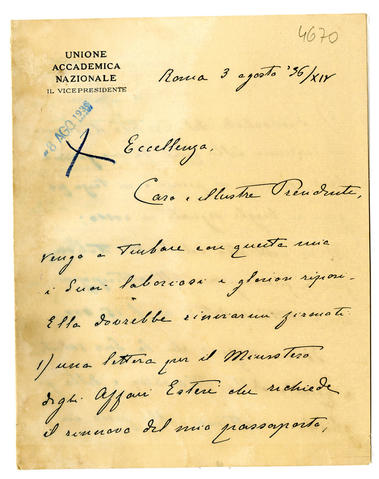 4670
UNIONE
ACCADEMICA
NAZIONALE
IL VICEPRESIDENTE
Roma 3 agosto '36/XIV
8 AGO 1936
Eccellenza,
Caro e illustre Presidente,
vengo a turbare con questa mia
i Suoi laboriosi e gloriosi riposi.
Ella dovrebbe rinviarmi firmati
1) una lettera per il Ministero
degli Affari Esteri che richiede
il rinnovo del mio passaporto,